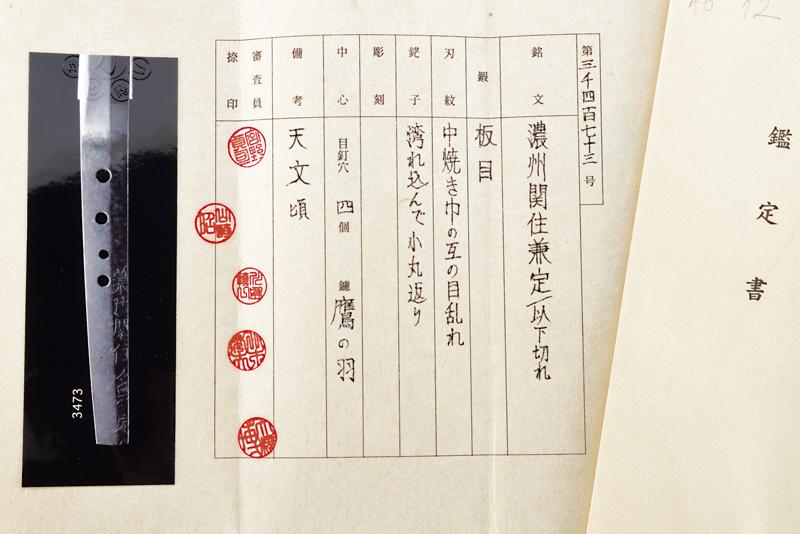 第三千四百七十三号
銘文 濃州関住兼定/以下切れ
鍛 板目
刃紋 中焼き巾の互の目乱れ
鋩子 湾れ込んで小丸返り
彫刻
中心 目釘穴 四個 鑢 鷹の羽
備考 天文頃
審査員
捺印
鑑定書
3473